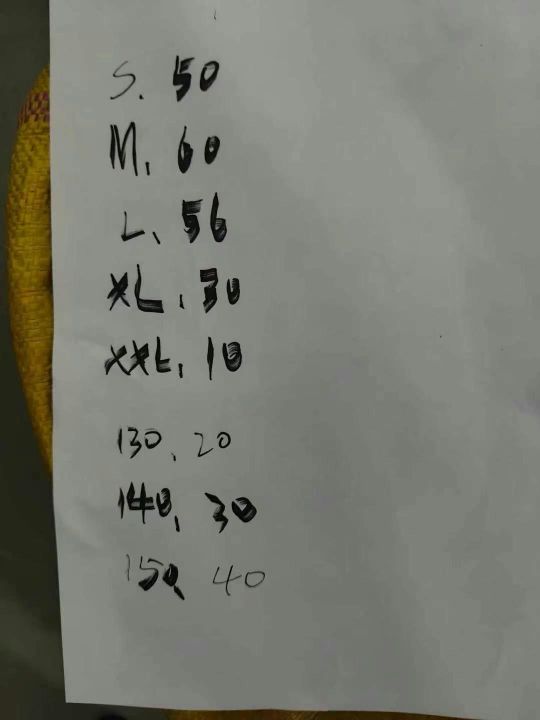 S. 50
M. 60
L、56
XL. 30
XXL. 10
130、20
140、30
150、40